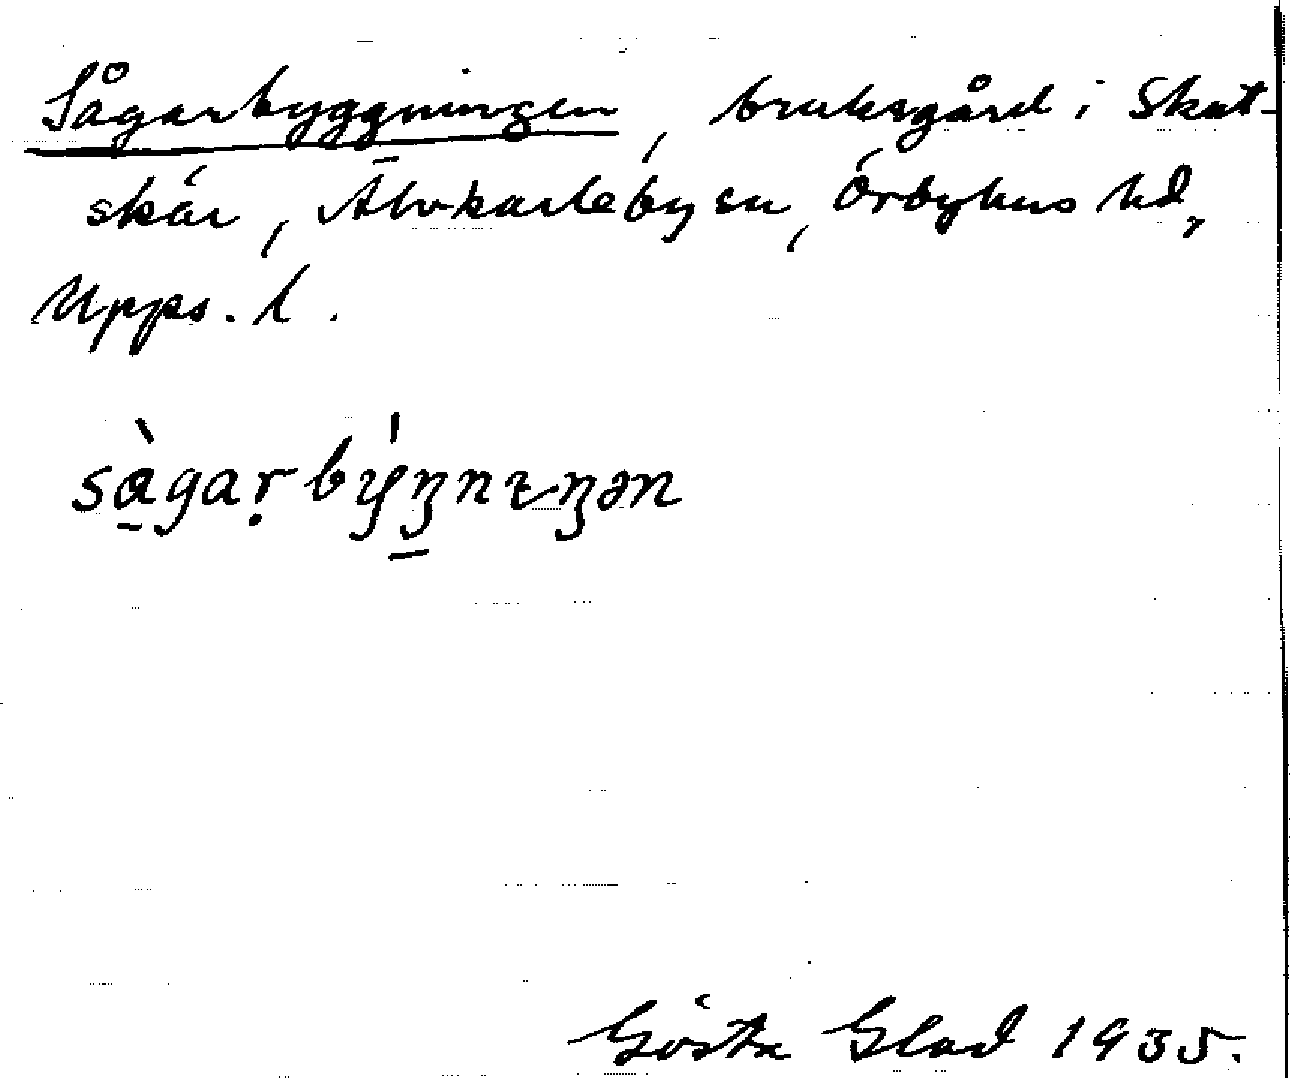 Sågarbyggningen, bruksgård i Skut-
skär, Älvkarleby sn, Örbyhus hd,
Upps. l.
sàgaṛbýŋnɩŋən
Gösta Glad 1935.